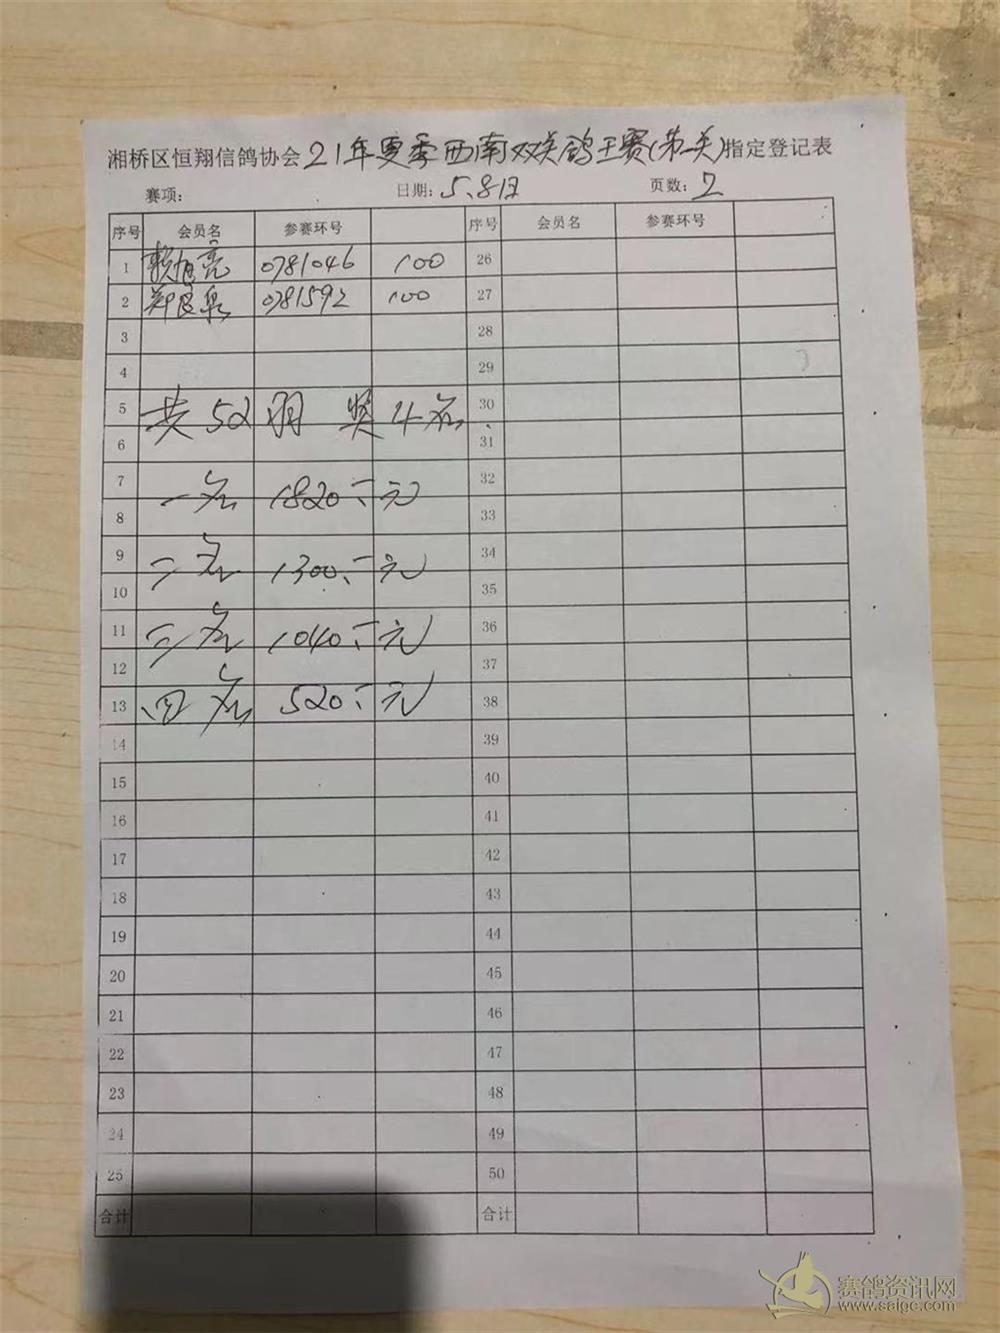 湘桥区恒翔信鸽协会21年夏季西南双关鸽王赛(第一关)指定登记表
赛项: 日期: 5.8日 页数: 2
序号 会员名 参赛环号 序号 会员名 参赛环号
1 赖旭亮 0781046 100 26
2 郑良泉 0781592 100 27
3 28
4 29
5 共52羽 奖4名. 30
6 31
7 一名 1820.元 32
8 33
9 二名 1300.元 34
10 35
11 三名 1040.元 36
12 37
13 四名 520.元 38
14 39
15 40
16 41
17 42
18 43
19 44
20 45
21 46
22 47
23 48
24 49
25 50
合计 合计
赛鸽资讯网
www.saigc.com